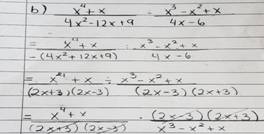 b) x⁴+x / 4x²-12x+9 ÷ x³-x²+x / 4x-6
= x⁴+x / -(4x²+12x+9) ÷ x³-x²+x / 4x-6
= x⁴+x / (2x+3)(2x-3) ÷ x³-x²+x / (2x-3)(2x+3)
= x⁴+x / (2x+3)(2x-3) · (2x-3)(2x+3) / x³-x²+x